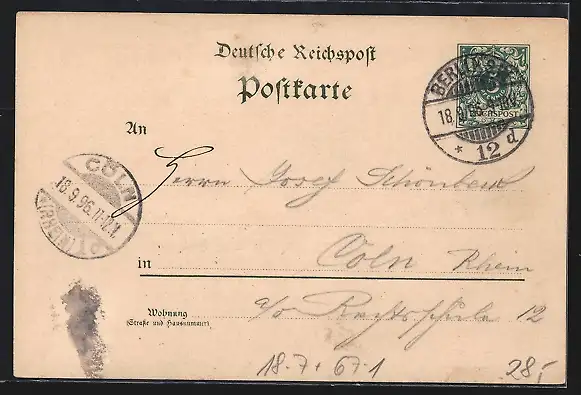 Deutsche Reichspost
Postkarte
BERLIN S.W.
18.9.96.
REICHSPOST
* 12 d
An
CÖLN
18.9.96.11-12.N
(RHEIN)
Herrn Josef Schönbeck
in Cöln Rhein
Wohnung
(Straße und Hausnummer)
a/o 12
18.7 + 67.1
28,-